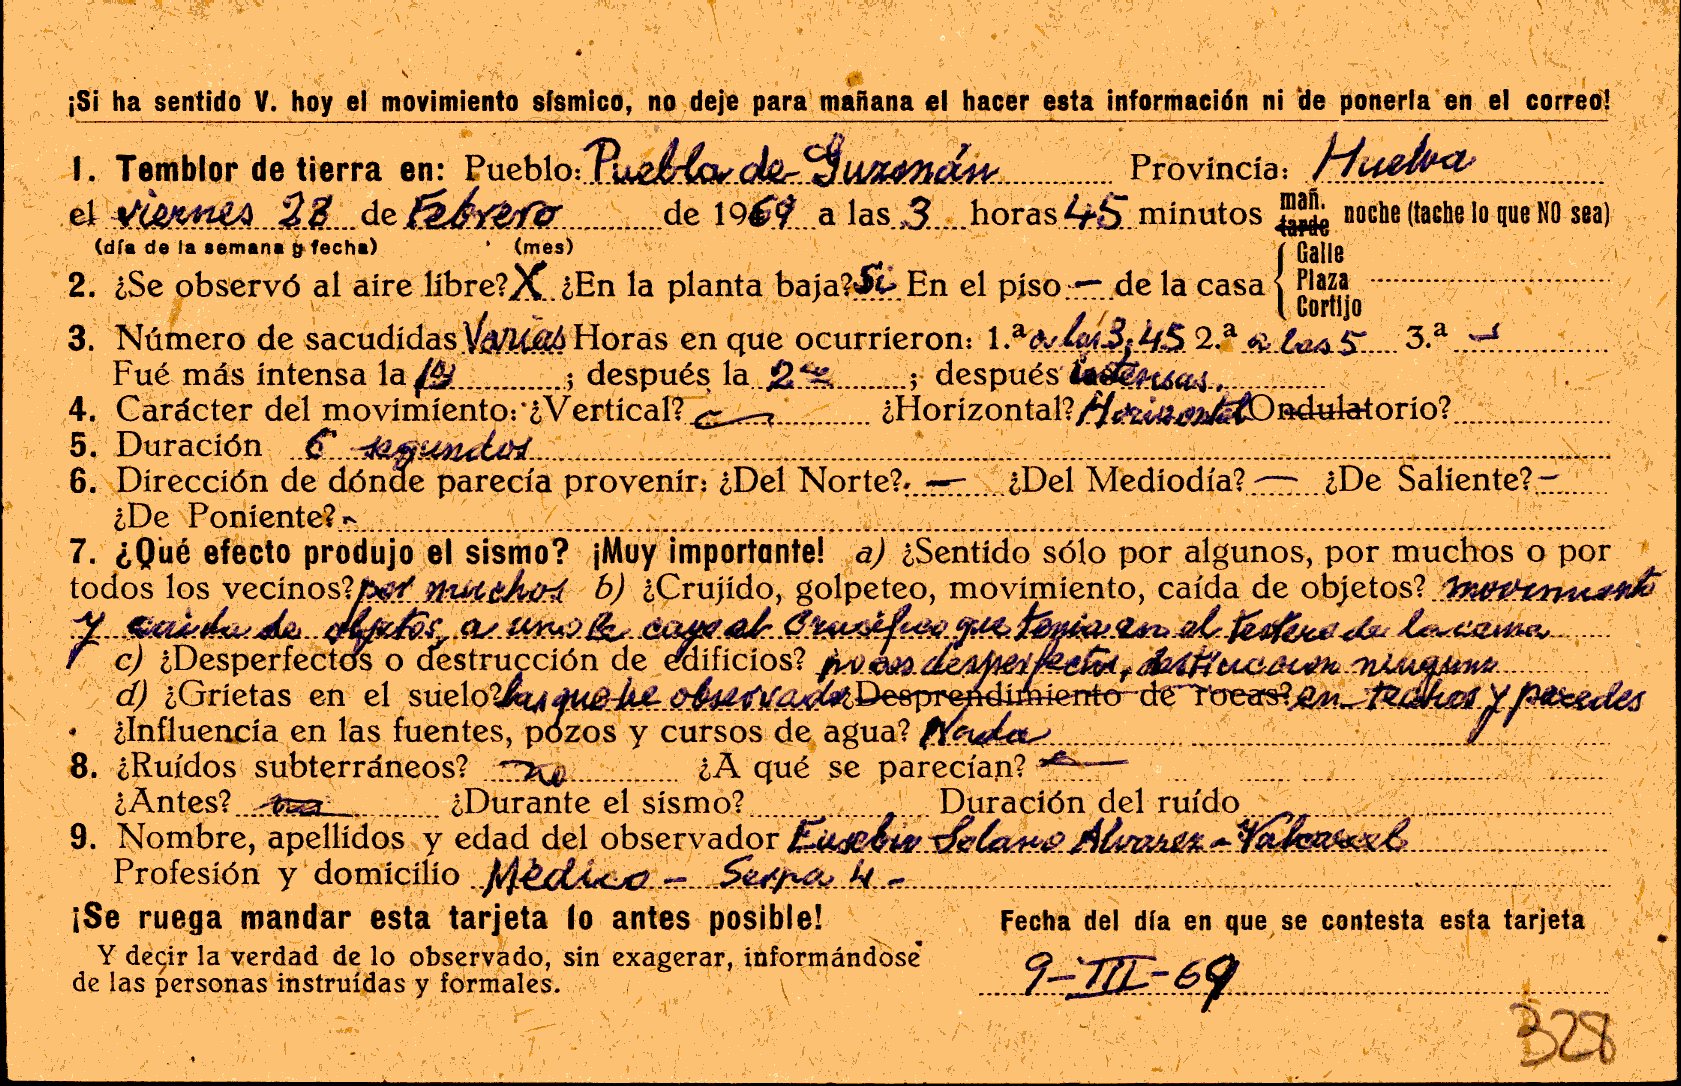 ¡Si ha sentido V. hoy el movimiento sísmico, no deje para mañana el hacer esta información ni de ponerla en el correo!
1. Temblor de tierra en: Pueblo: Puebla de Guzmán Provincia: Huelva
el viernes 28 de Febrero de 1969 a las 3 horas 45 minutos mañ. tarde noche (tache lo que NO sea)
(día de la semana y fecha) (mes)
2. ¿Se observó al aire libre? X ¿En la planta baja? Si En el piso — de la casa Calle Plaza Cortijo
3. Número de sacudidas Varias Horas en que ocurrieron: 1.ª a las 3,45 2.ª a las 5 3.ª —
Fué más intensa la 1ª ; después la 2ª ; después intensas.
4. Carácter del movimiento: ¿Vertical? — ¿Horizontal? Horizontal Ondulatorio?
5. Duración 6 segundos
6. Dirección de dónde parecía provenir: ¿Del Norte? — ¿Del Mediodía? — ¿De Saliente? —
¿De Poniente? -
7. ¿Qué efecto produjo el sismo? ¡Muy importante! a) ¿Sentido sólo por algunos, por muchos o por
todos los vecinos? por muchos b) ¿Crujido, golpeteo, movimiento, caída de objetos? movimiento
y caida de objetos, a uno le cayo el Crucifico que tenia en el testero de la cama
c) ¿Desperfectos o destrucción de edificios? pocos desperfectos, destruccion ninguna
d) ¿Grietas en el suelo? las que he observado ¿Desprendimiento de rocas? en techos y paredes
¿Influencia en las fuentes, pozos y cursos de agua? Nada
8. ¿Ruídos subterráneos? no ¿A qué se parecían? —
¿Antes? no ¿Durante el sismo? Duración del ruído
9. Nombre, apellidos y edad del observador Eusebio Solano Alvarez - Valcarcel
Profesión y domicilio Médico - Serpa 4 -
¡Se ruega mandar esta tarjeta lo antes posible! Fecha del día en que se contesta esta tarjeta
Y decir la verdad de lo observado, sin exagerar, informándose
de las personas instruídas y formales.
9-III-69
328